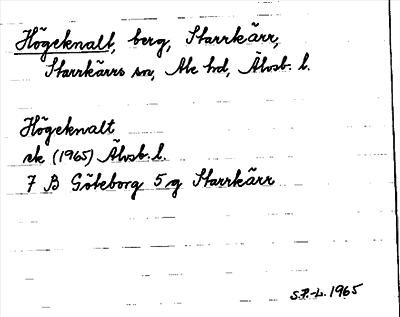 Högeknalt, berg, Starrkärr,
Starrkärrs sn, Ale hd, Älvsb. l.
Högeknalt
ek (1965) Älvsb. l.
7 B Göteborg 5 g Starrkärr
S.P.-L. 1965